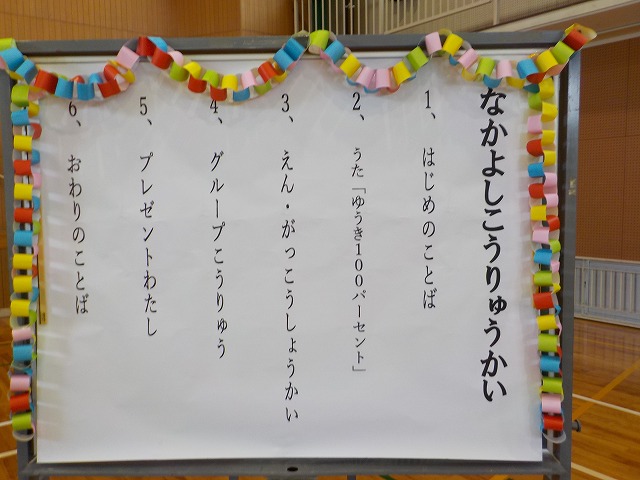 なかよしこうりゅうかい
1、はじめのことば
2、うた「ゆうき100パーセント」
3、えん・がっこうしょうかい
4、グループこうりゅう
5、プレゼントわたし
6、おわりのことば